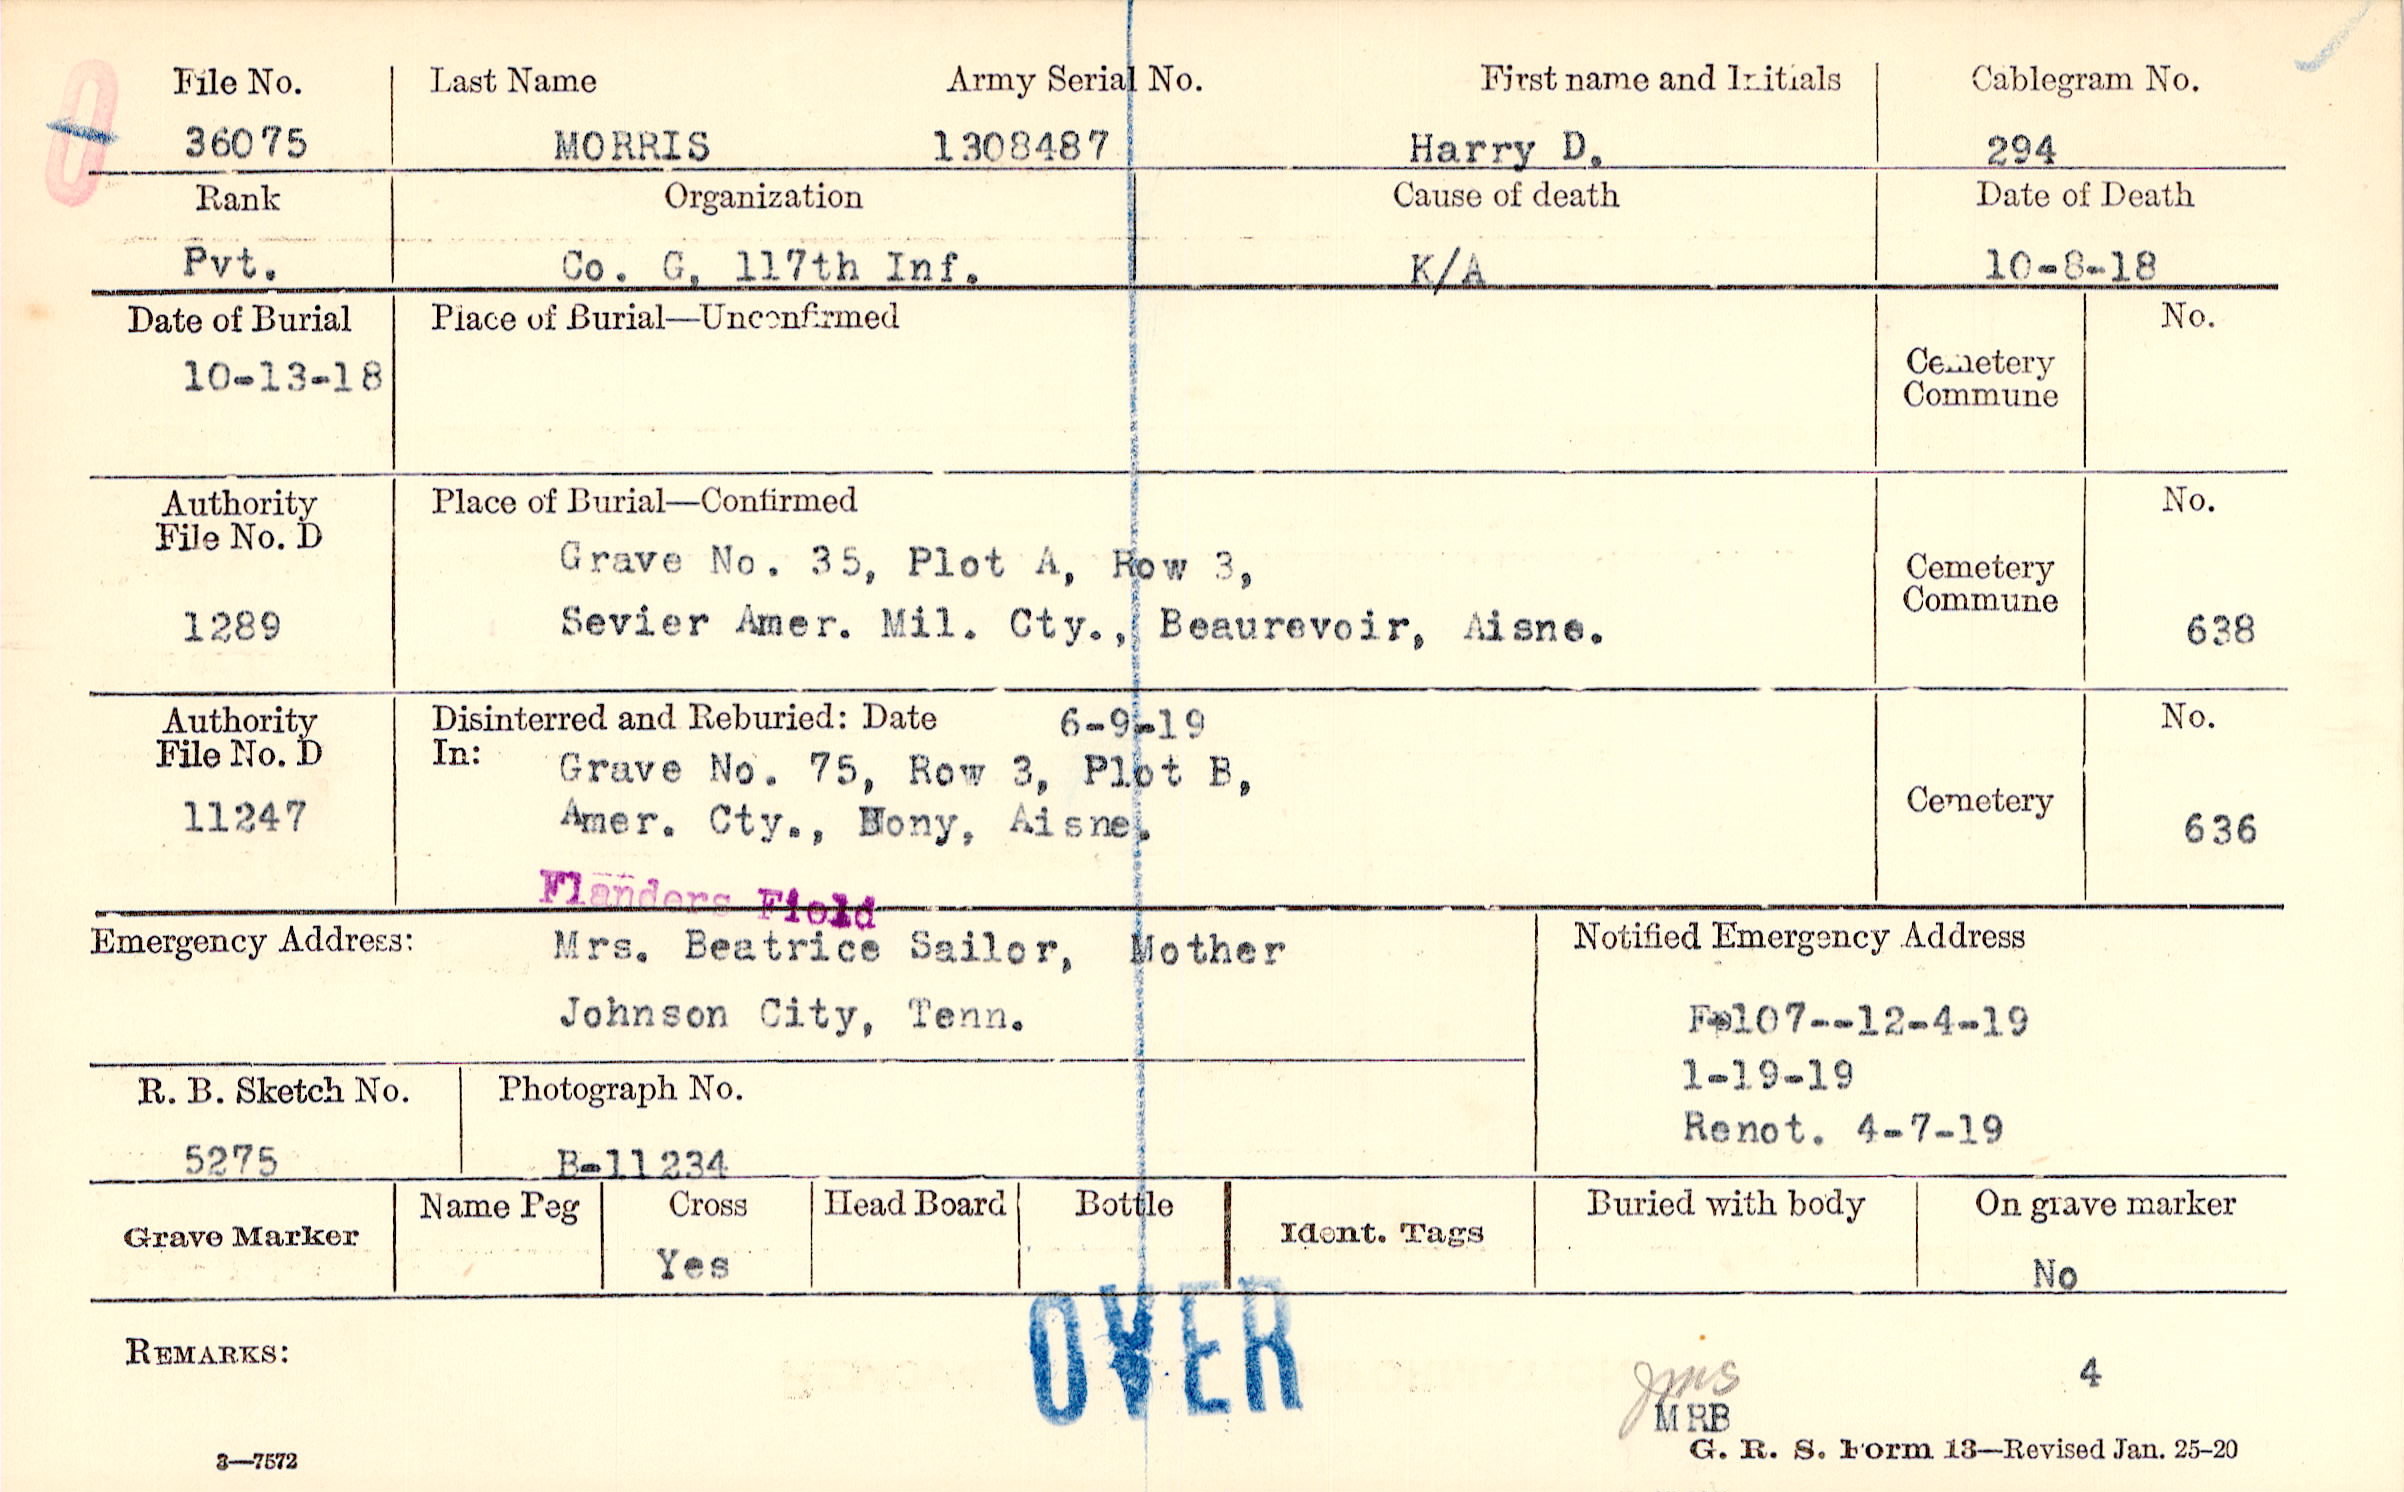 File No. Last Name Army Serial No. First name and Initials Cablegram No.
36075 MORRIS 1308487 Harry D. 294
Rank Organization Cause of death Date of Death
Pvt. Co. G, 117th Inf. K/A 10-8-18
Date of Burial Place of Burial—Unconfirmed No.
10-13-18
Cemetery
Commune
Authority Place of Burial—Confirmed No.
File No. D
Grave No. 35, Plot A, Row 3,
Cemetery
Commune
1289 Sevier Amer. Mil. Cty., Beaurevoir, Aisne. 638
Authority Disinterred and Reburied: Date 6-9-19 No.
File No. D In: Grave No. 75, Row 3, Plot B,
Cemetery
11247 Amer. Cty., Bony, Aisne. 636
Flanders Field
Emergency Address: Mrs. Beatrice Sailor, Mother Notified Emergency Address
Johnson City, Tenn. F-107--12-4-19
1-19-19
R. B. Sketch No. Photograph No.
Renot. 4-7-19
5275 B-11234
Grave Marker Name Peg Cross Head Board Bottle Ident. Tags Buried with body On grave marker
Yes No
OVER
REMARKS:
jms 4
MRB
3—7572 G. R. S. Form 13—Revised Jan. 25-20